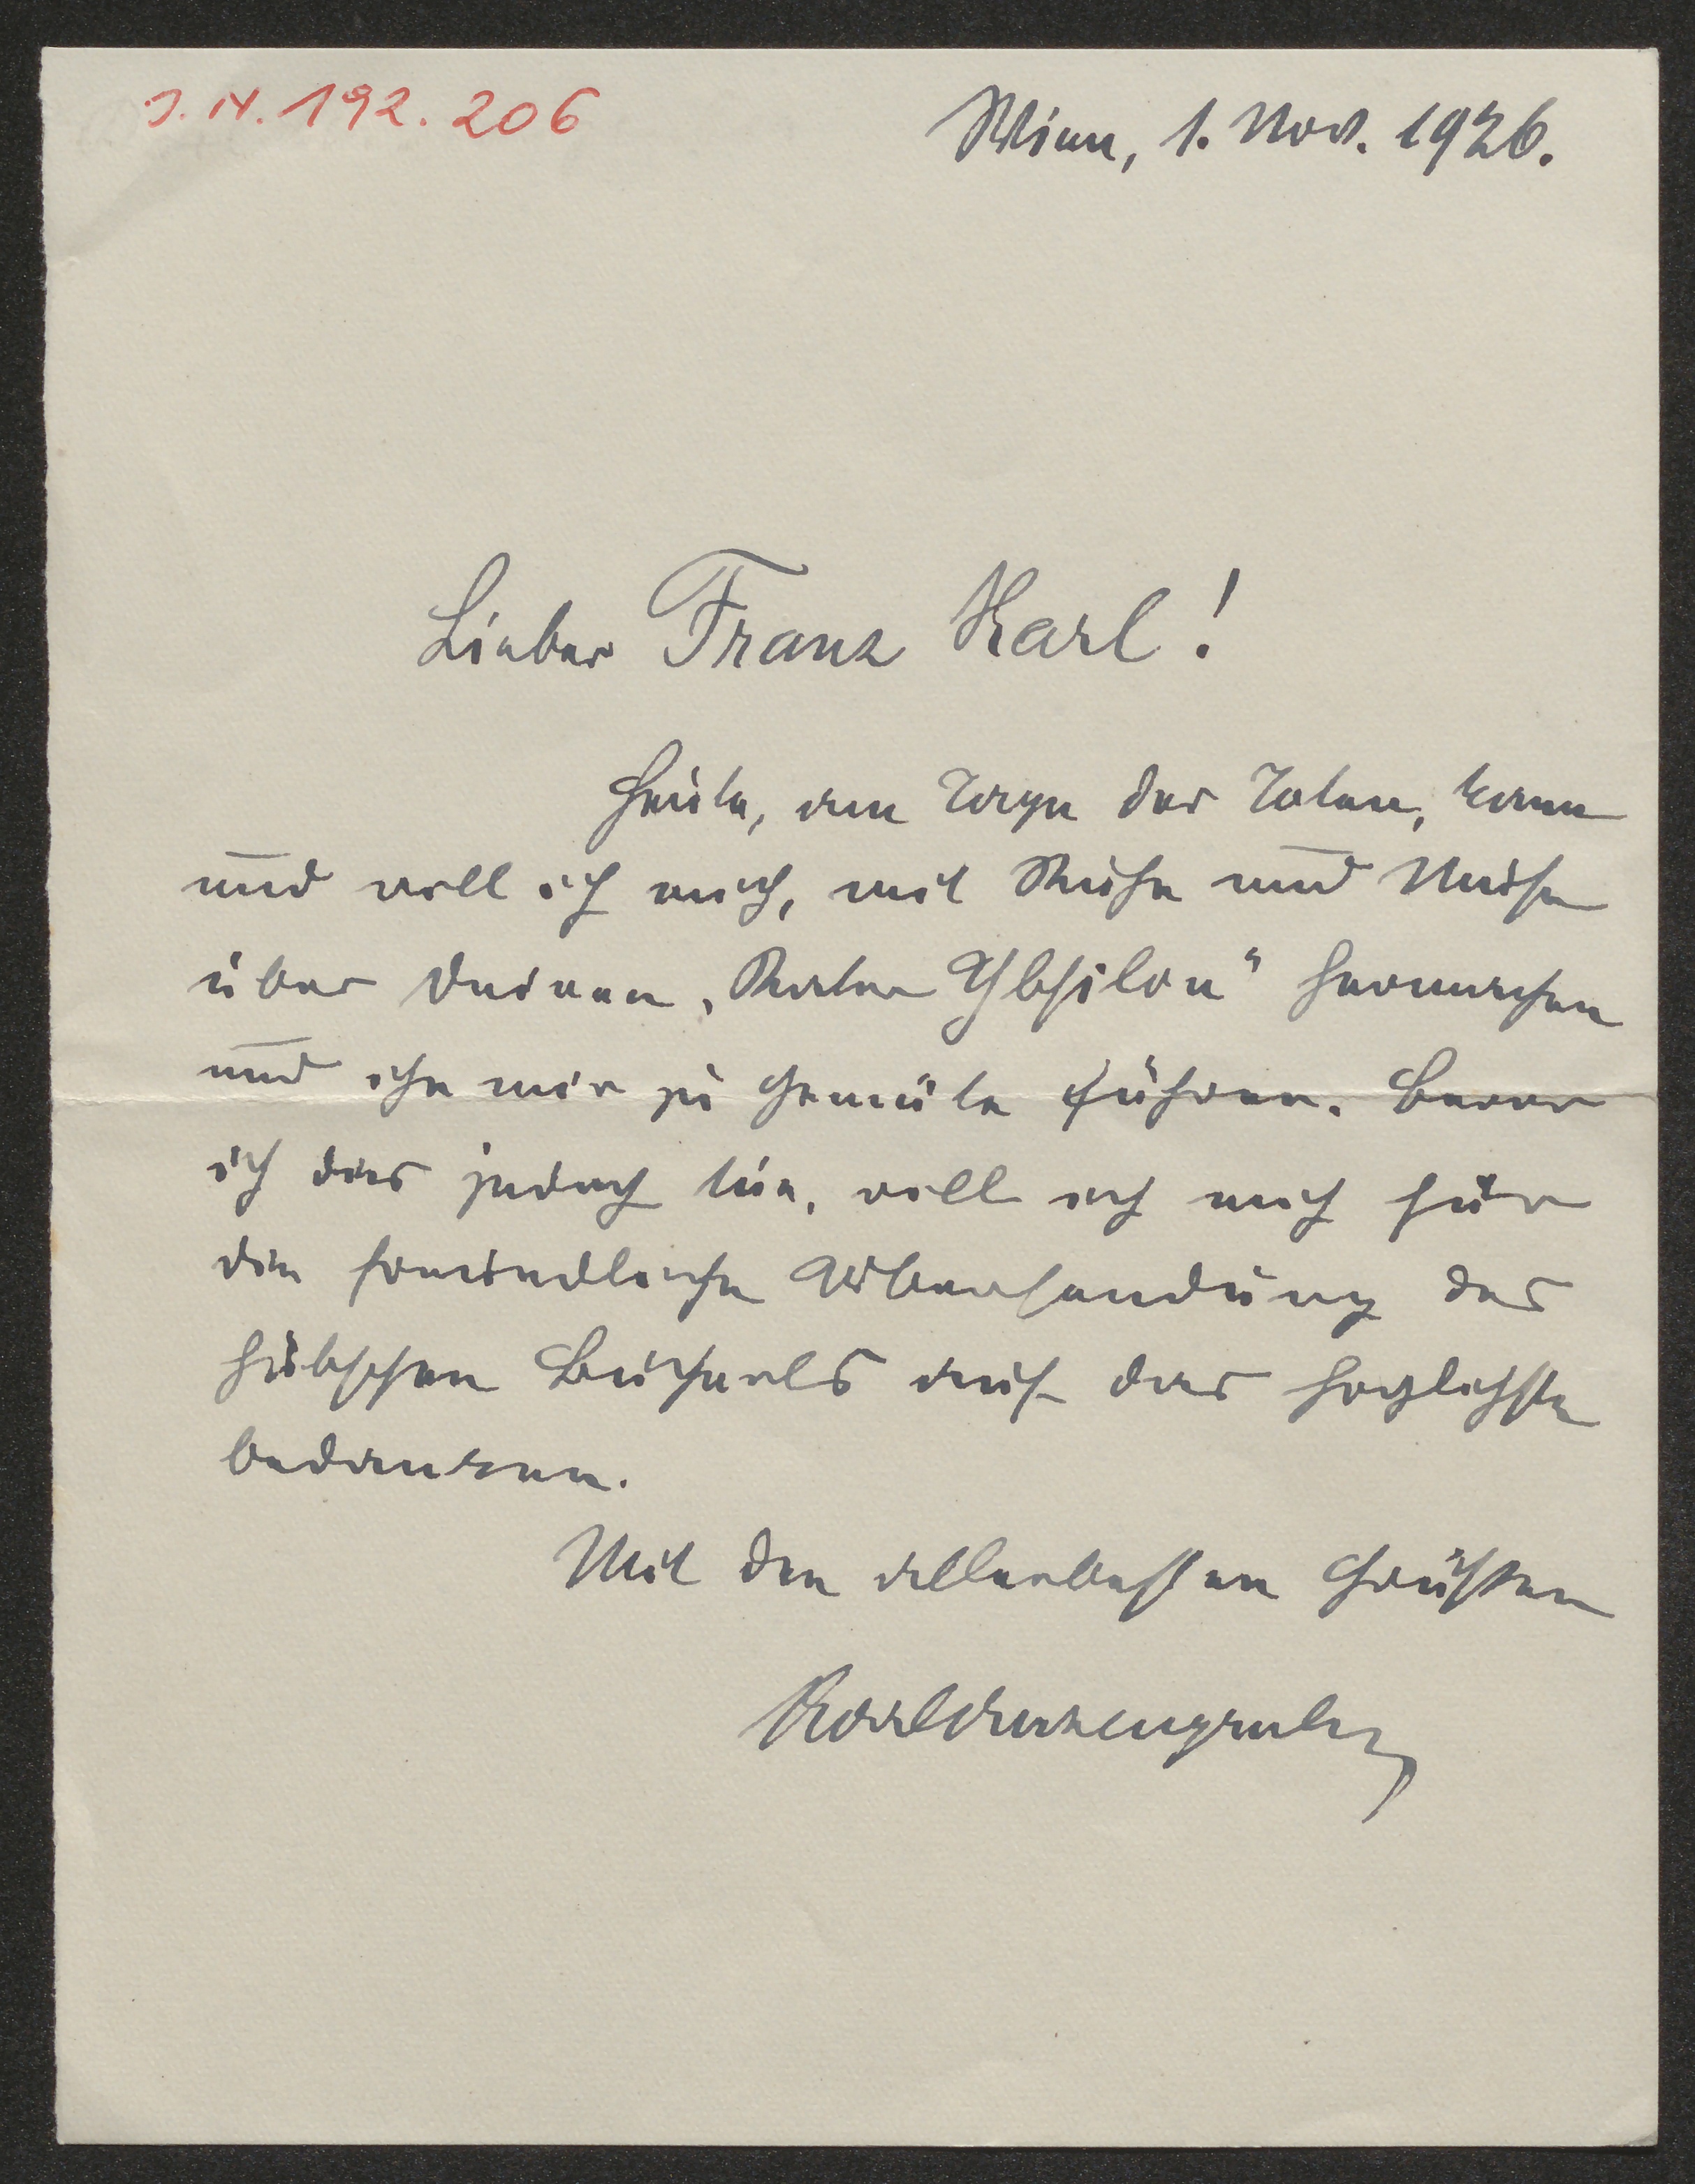 J. N. 192.206
Wien, 1. Nov. 1926.
Lieber Franz Karl!
Heute, am Tage der Toten, kann
und will ich mich, mit Ruhe und Muße
über Deinen „Kater Ypsilon" hermachen
und ihn mir zu Gemüte führen. Bevor
ich dies jedoch tue, will ich mich für
die freundliche Übersendung des
hübschen Bücherls auf das herzlichste
bedanken.
Mit den allerbesten Grüßen
Karl Anzengruber